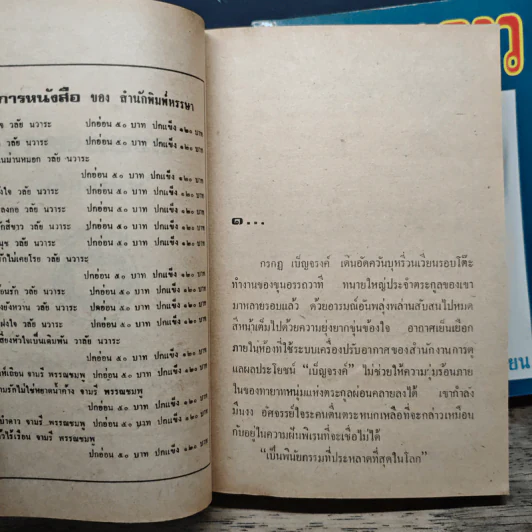 การหนังสือ ของ สำนักพิมพ์หรรษา
วลัย นวาระ ปกอ่อน ๕๐ บาท ปกแข็ง ๑๒๐ บาท
วลัย นวาระ ปกอ่อน ๕๐ บาท ปกแข็ง ๑๒๐ บาท
นม่านหมอก วลัย นวาระ
ปกอ่อน ๕๐ บาท ปกแข็ง ๑๒๐ บาท
วลัย นวาระ ปกอ่อน ๕๐ บาท ปกแข็ง ๑๒๐ บาท
วลัย นวาระ ปกอ่อน ๕๐ บาท ปกแข็ง ๑๒๐ บาท
วลัย นวาระ ปกอ่อน ๕๐ บาท ปกแข็ง ๑๒๐ บาท
วลัย นวาระ ปกอ่อน ๕๐ บาท ปกแข็ง ๑๒๐ บาท
รักไม่เคยโรย วลัย นวาระ
ปกอ่อน ๕๐ บาท ปกแข็ง ๑๒๐ บาท
วลัย นวาระ ปกอ่อน ๕๐ บาท ปกแข็ง ๑๒๐ บาท
ยังหวาน วลัย นวาระ ปกอ่อน ๕๐ บาท ปกแข็ง ๑๒๐ บาท
วลัย นวาระ ปกอ่อน ๕๐ บาท ปกแข็ง ๑๒๐ บาท
วลัย นวาระ
ปกอ่อน ๕๐ บาท ปกแข็ง ๑๒๐ บาท
จามรี พรรณชมพู ปกอ่อน ๕๐ บาท ปกแข็ง ๑๒๐ บาท
รักไม่ใช่หยาดน้ำค้าง จามรี พรรณชมพู
ปกอ่อน ๕๐ บาท ปกแข็ง ๑๒๐ บาท
จามรี พรรณชมพู ปกอ่อน ๕๐ บาท ปกแข็ง ๑๒๐ บาท
ไร้เรือน จามรี พรรณชมพู
ปกอ่อน ๕๐ บาท ปกแข็ง ๑๒๐ บาท
๑...
กรกฎ เบ็ญจรงค์ เดินอัดควันบุหรี่วนเวียนรอบโต๊ะ
ทำงานของขุนอรรถวาที ทนายใหญ่ประจำตระกูลของเขา
มาหลายรอบแล้ว ด้วยอารมณ์อันพลุ่งพล่านสับสนไปหมด
สีหน้าเต็มไปด้วยความยุ่งยากขุ่นข้องใจ อากาศเย็นเยือก
ภายในห้องที่ใช้ระบบเครื่องปรับอากาศของสำนักงานการดู
แลผลประโยชน์ "เบ็ญจรงค์" ไม่ช่วยให้ความรุ่มร้อนภาย
ในของทายาทหนุ่มแห่งตระกูลผ่อนคลายลงได้ เขากำลัง
มึนงง อัศจรรย์ใจระคนตื่นตระหนกเหลือที่จะกล่าวเหมือน
กับอยู่ในความฝันพิเรนที่จะเชื่อไม่ได้
"เป็นพินัยกรรมที่ประหลาดที่สุดในโลก"